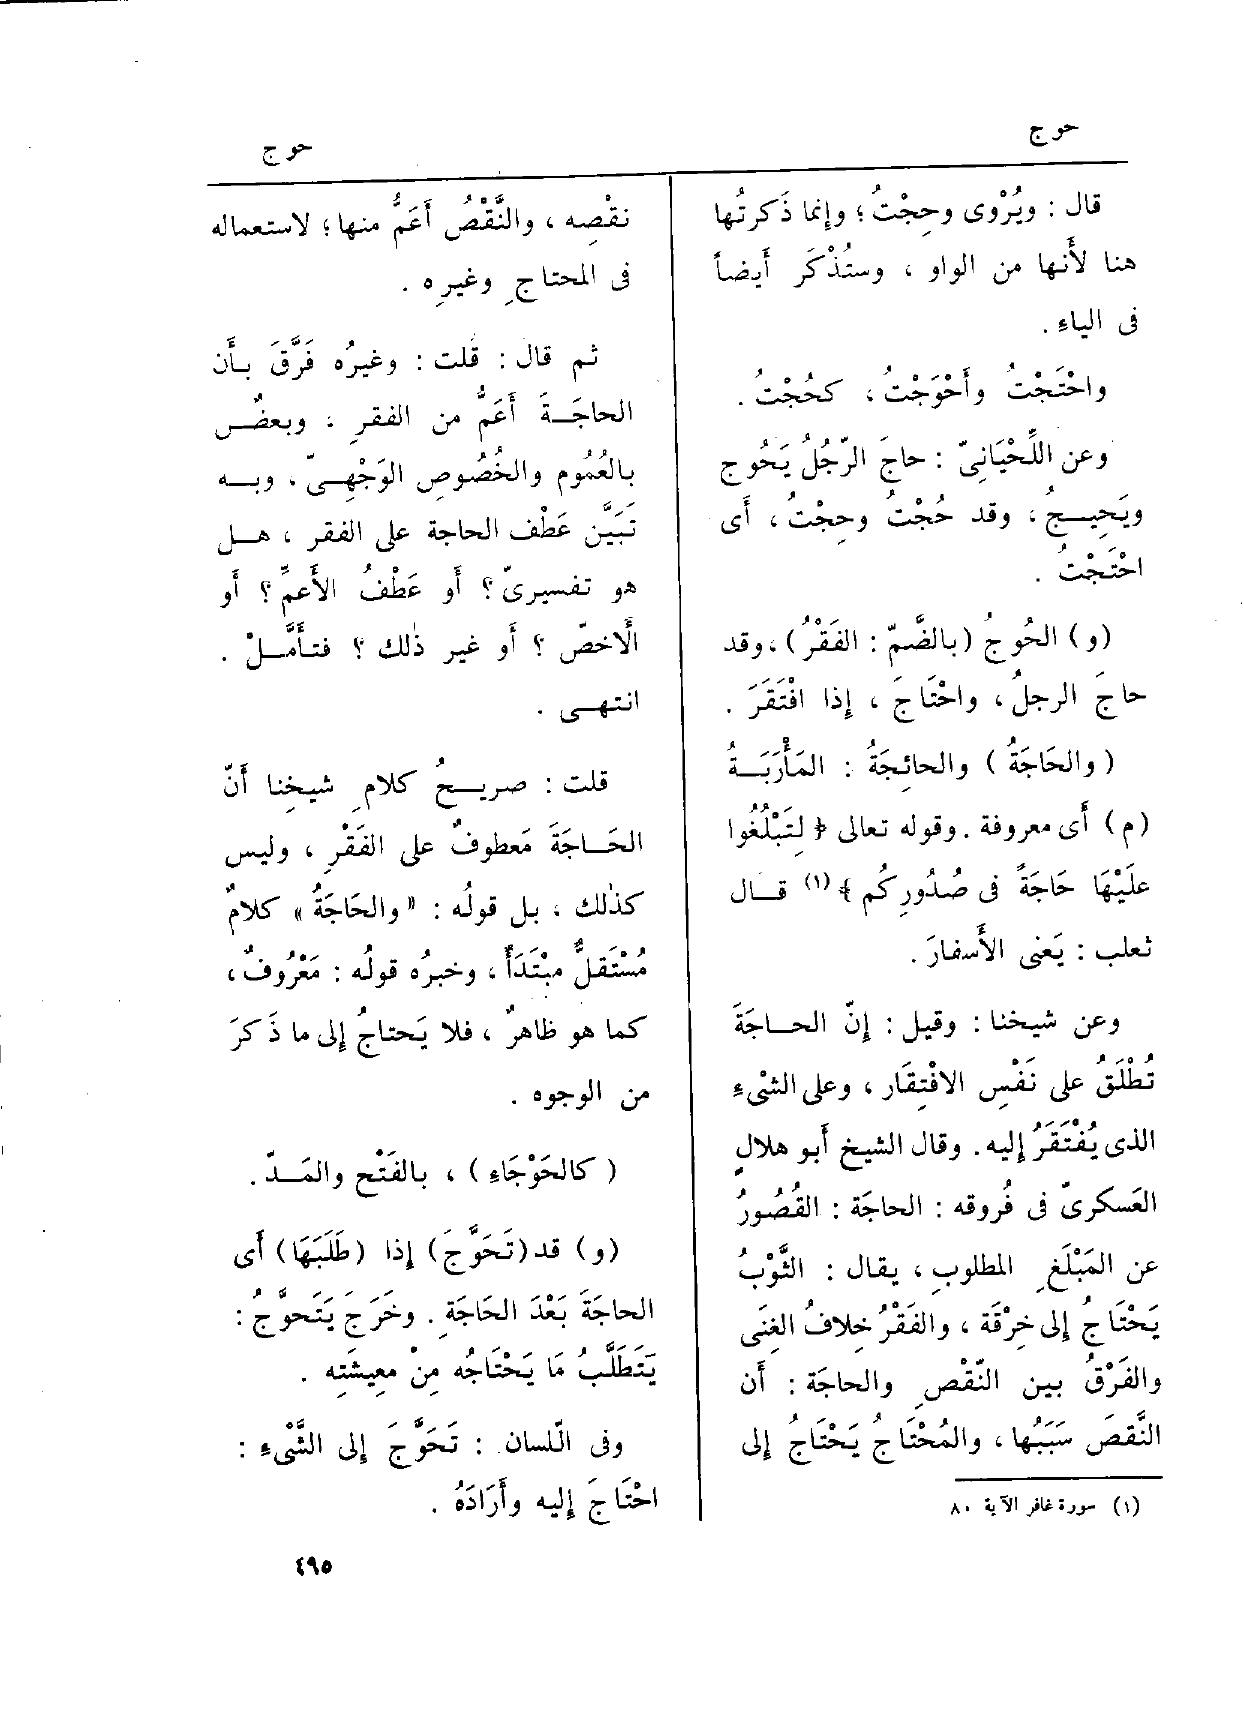 حوج
حوج
قال : ويُرْوى وحِجْتُ ؛ وإنما ذَكرتُها
هنا لأَنها من الواو ، وستُذْكَر أَيضاً
فى الياءِ .
واحْتَجْتُ وأَحْوَجْتُ ، كحُجْتُ .
وعن اللِّحْيَانِىّ : حاجَ الرّجُلُ يَحُوج
ويَحِيــجُ ، وقد حُجْتُ وحِجْتُ ، أَى
احْتَجْتُ .
(و) الحُوجُ (بالضَّمّ : الفَقْرُ) ، وقد
حاجَ الرجلُ ، واحْتَاجَ ، إذا افْتَقَرَ .
(والحَاجَةُ) والحائِجَةُ : المَأْرَبَــةُ
(م) أَى معروفة . وقوله تعالى ﴿ لِتَبْلُغُوا
عَلَيْهَا حَاجَةً فى صُدُورِكُم ﴾ (١) قــال
ثعلب : يَعْنى الأَسفارَ .
وعن شيخنا : وقيل : إِنّ الحــاجَةَ
تُطْلَقُ على نَفْسِ الافْتِقَار ، وعلى الشىْءِ
الذى يُفْتَقَرُ إليه . وقال الشيخ أَبو هلالٍ
العَسكرىّ فى فُروقه : الحاجَة : القُصُورُ
عن المَبْلَغِ المطلوبِ ، يقال : الثَّوْبُ
يَحْتَاجُ إلى خِرْقَة ، والفَقْرُ خِلافُ الغِنَى
والفَرْقُ بين النّقْصِ والحاجَة : أَن
النَّقصَ سَبَبُها ، والمُحْتَاجُ يَحْتَاجُ إلى
(١) سورة غافر الآية ٨٠
نقْصِه ، والنَّقْصُ أَعَمُّ منها ؛ لاستعماله
فى المحتاجِ وغيرِه .
ثم قال : قُلت : وغيرُه فَرَّقَ بـأَن
الحاجَــةَ أَعَمُّ من الفقرِ ، وبعضٌــ
بالعُمُومِ والخُصُوصِ الوَجْهِــىّ ، وبــه
تَبَيَّن عَطْف الحاجة على الفقر ، هــل
هو تفسيرىّ ؟ أَو عَطْفُ الأَعمِّ ؟ أَو
الأَخصّ ؟ أَو غير ذٰلك ؟ فتأَمَّــلْ .
انتهــى .
قلت : صريــحُ كلامِ شيخِنا أَنّ
الحَــاجَةَ مَعطوفٌ على الفَقْرِ ، وليس
كذٰلك ، بل قولُه : « والحَاجَةُ » كلامٌ
مُسْتقلٌّ مبْتَدَأٌ ، وخبرُه قولُه : مَعْرُوفٌ ،
كما هو ظاهرٌ ، فلا يَحتاجُ إلى ما ذَكرَ
من الوجوه .
(كالحَوْجَاءِ) ، بالفَتْح والمَــدّ .
(و) قد (تَحَوَّجَ) إذا (طَلَبَهَا) أَى
الحاجَةَ بَعْدَ الحَاجَةِ . وخَرَجَ يَتَحوَّجُ :
يَتَطَلَّبُ مَا يَحْتَاجُه مِنْ معِيشَتِه .
وفى اللّسان : تَحَوَّجَ إلى الشَّىْءِ :
احْتَاجَ إليه وأَرَادَهُ .
٤٩٥